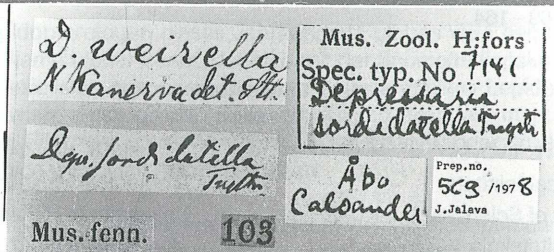 D. weirella
N. Kanerva det.
Mus. Zool. H:fors
Spec. typ. No 7141
Depressaria
sordidatella Tngstr
Depr. sordidatella
Tngstr.
Åbo
Caloander
Prep.no.
569 /1978
J.Jalava
Mus. fenn. 103